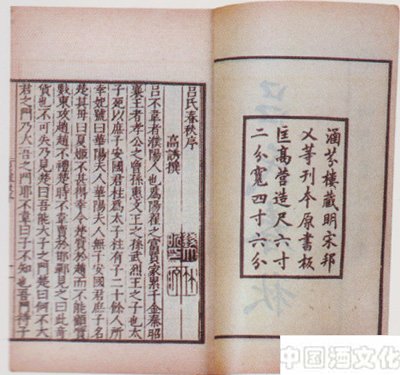 涵芬樓藏明宋邦
乂等刊本原書板
匡高營造尺六寸
二分寬四寸六分
呂氏春秋序
高誘撰
呂不韋者濮陽人也為陽翟之富賈家累千金秦昭
襄王者孝公之曾孫惠文王之孫武烈王之子也太
子死以庶子安國君柱為太子柱有子二十餘人所
幸妃號曰華陽夫人無子安國君庶子名
楚其母曰夏姬不甚得幸令楚質於趙而不能顧質
數東攻趙趙不禮楚時不韋賈於邯鄲見之曰此奇
貨也不可失乃見楚曰吾能大子之門楚曰何不大
君之門乃大吾之門耶不韋曰子不知也吾門待子
中国酒文化